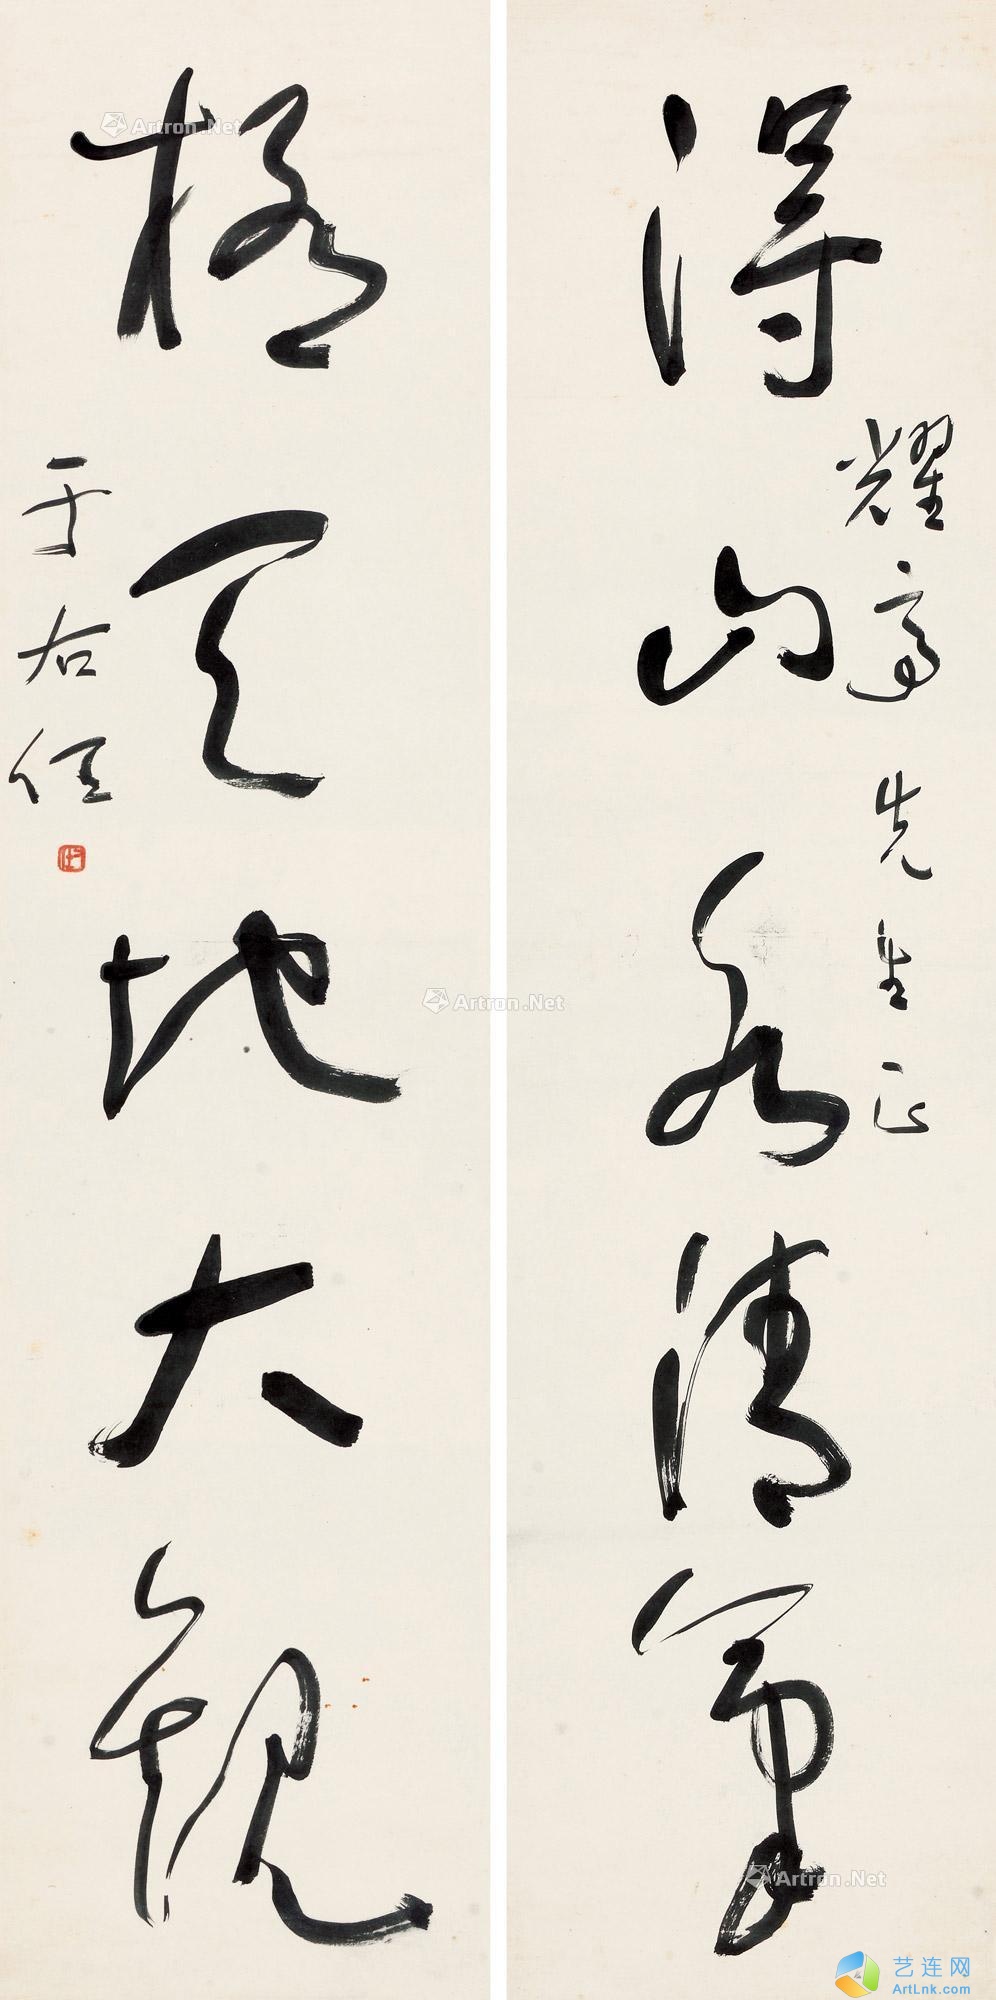 得山水清气
耀亭先生正
极天地大观
于右任
Artron.Net
Artron.Net
Artron.Net
艺连网
ArtLnk.com